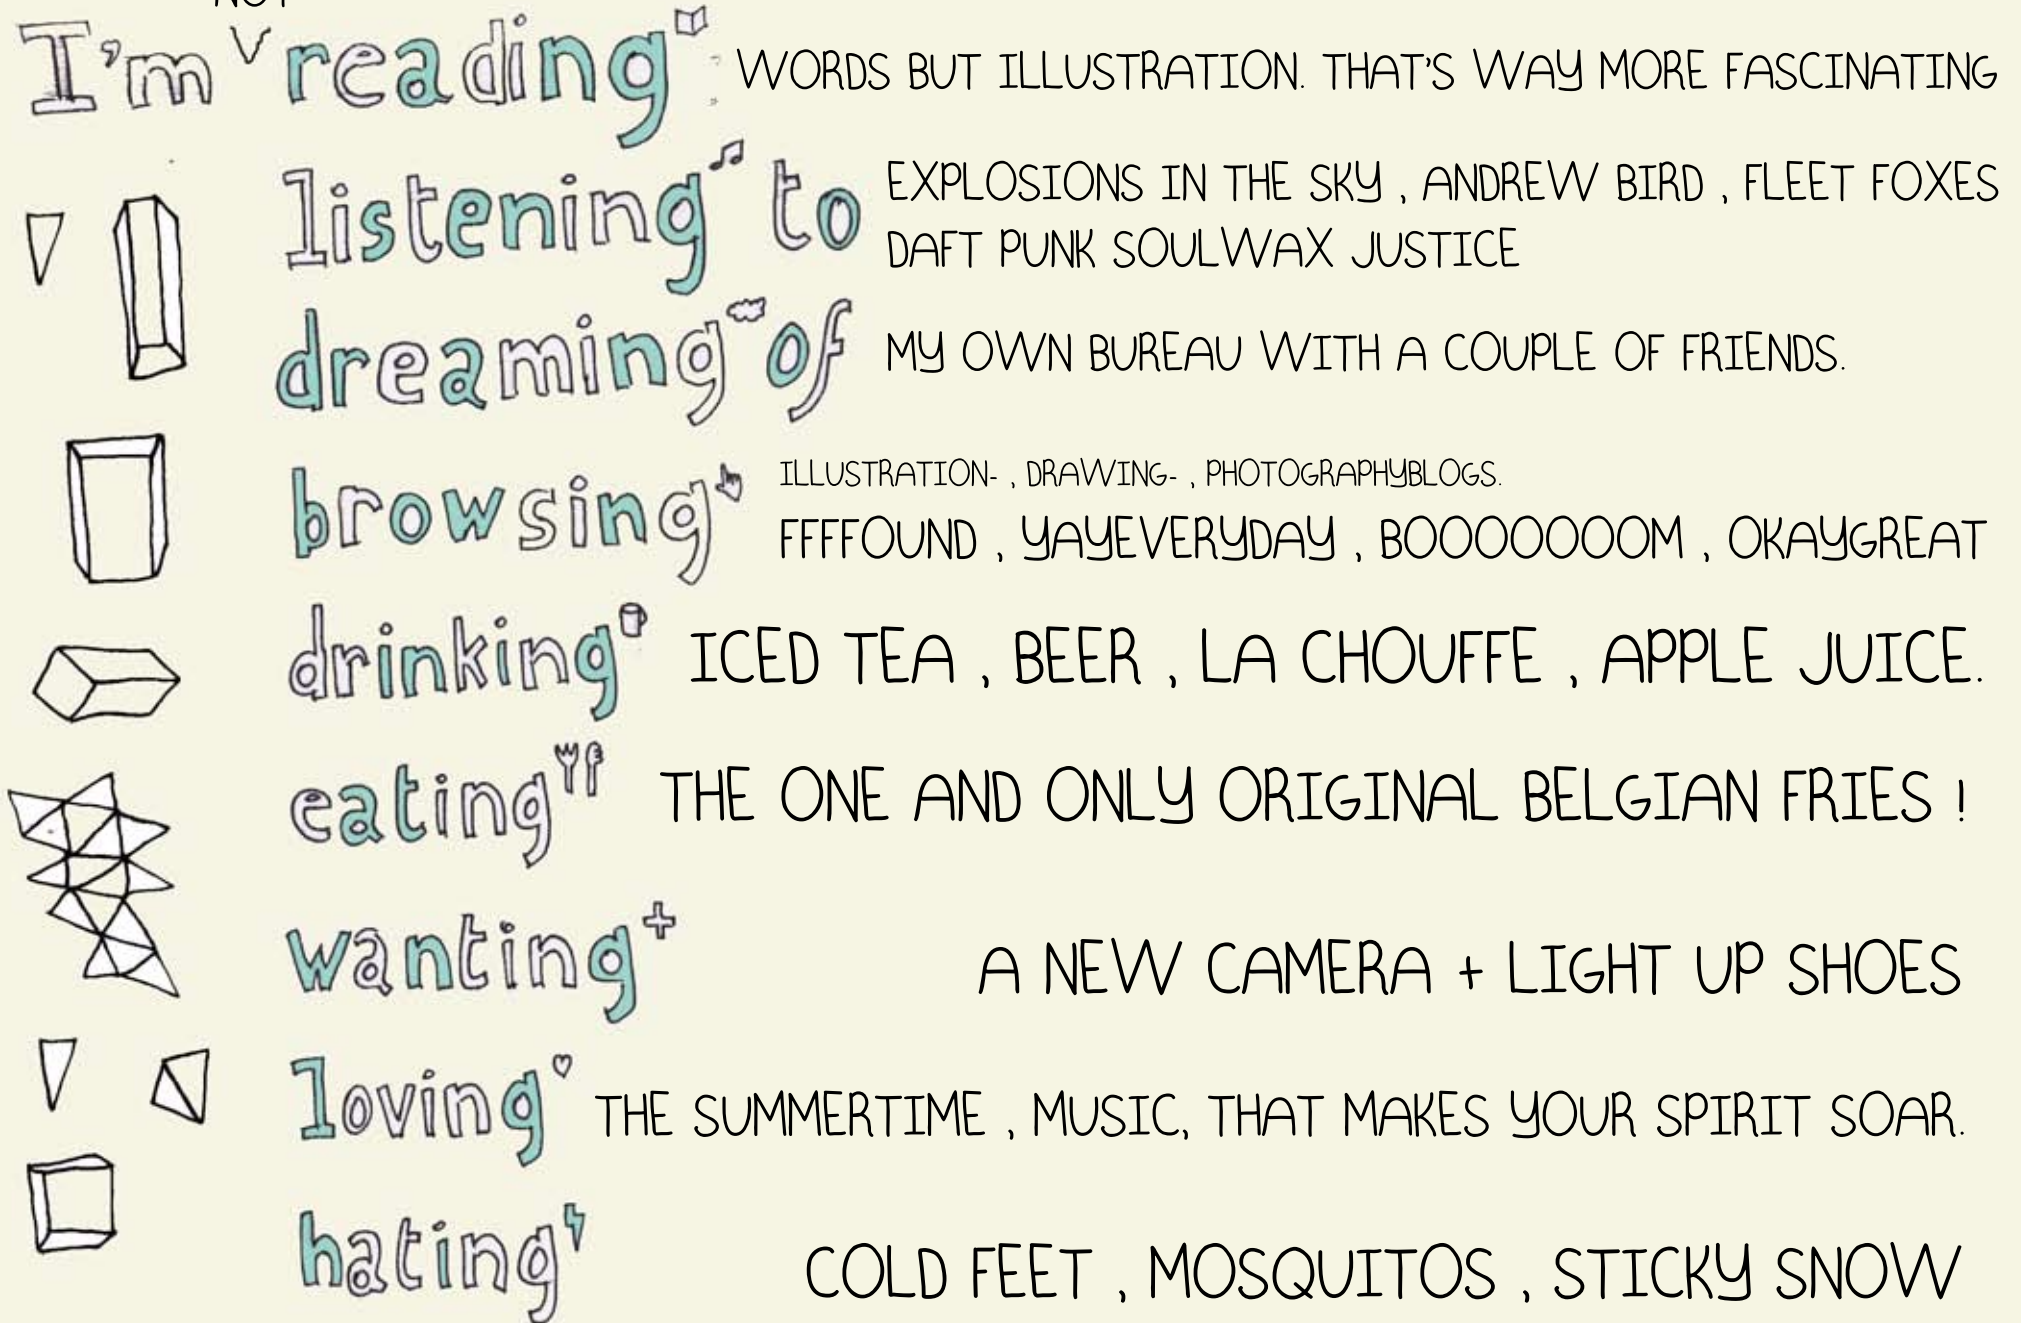 NOT
I'm reading : WORDS BUT ILLUSTRATION. THAT'S WAY MORE FASCINATING
listening to EXPLOSIONS IN THE SKY , ANDREW BIRD , FLEET FOXES
DAFT PUNK SOULWAX JUSTICE
dreaming of MY OWN BUREAU WITH A COUPLE OF FRIENDS.
browsing ILLUSTRATION- , DRAWING- , PHOTOGRAPHYBLOGS.
FFFFOUND , YAYEVERYDAY , BOOOOOOOM , OKAYGREAT
drinking ICED TEA , BEER , LA CHOUFFE , APPLE JUICE.
eating THE ONE AND ONLY ORIGINAL BELGIAN FRIES !
wanting A NEW CAMERA + LIGHT UP SHOES
loving THE SUMMERTIME , MUSIC, THAT MAKES YOUR SPIRIT SOAR.
hating COLD FEET , MOSQUITOS , STICKY SNOW